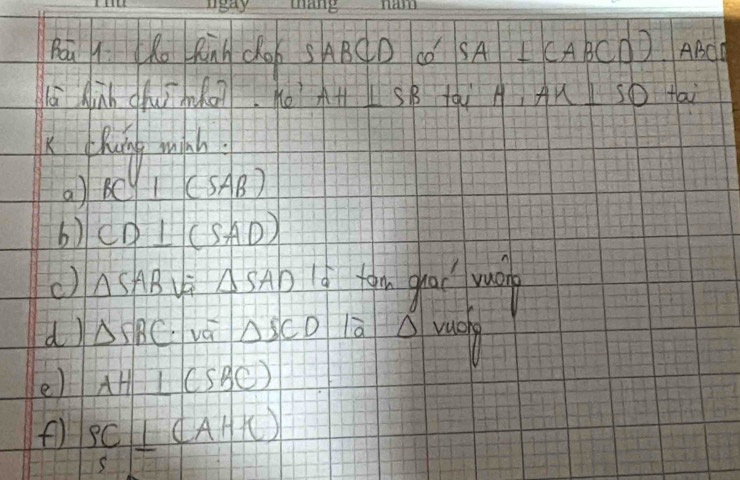 Thứ ngày tháng năm
Bài 1. Cho hình chóp SABCD có SA ⊥ (ABCD). ABCD
là hình chữ nhật. Kẻ AH ⊥ SB tại H, AK ⊥ SD tại
K chứng minh:
a) BC ⊥ (SAB)
b) CD ⊥ (SAD)
c) ΔSAB và ΔSAD là tam giác vuông
d) ΔSBC và ΔSCD là Δ vuông
e) AH ⊥ (SBC)
f) SC ⊥ (AHK)
S